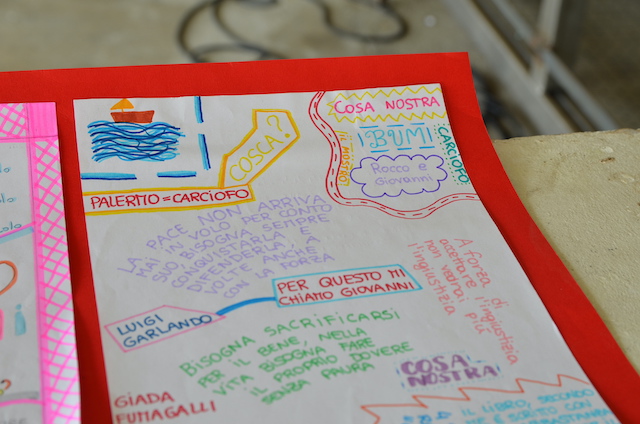 COSA NOSTRA
COSCA?
IL MOSTRO
BUM!
CARCIOFO
Rocco e
Giovanni
PALERMO = CARCIOFO
LA PACE NON ARRIVA
MAI IN VOLO PER CONTO
SUO, BISOGNA SEMPRE
CONQUISTARLA E
DIFENDERLA, A
VOLTE ANCHE
CON LA FORZA
A forza di
accettare l'ingiustizia
non vedrai più
l'ingiustizia
PER QUESTO MI
CHIAMO GIOVANNI
LUIGI
GARLANDO
BISOGNA SACRIFICARSI
PER IL BENE, NELLA
VITA BISOGNA FARE
IL PROPRIO DOVERE
SENZA PAURA
COSA
NOSTRA
GIADA
FUMAGALLI
IL LIBRO, SECONDO
ME È SCRITTO CON